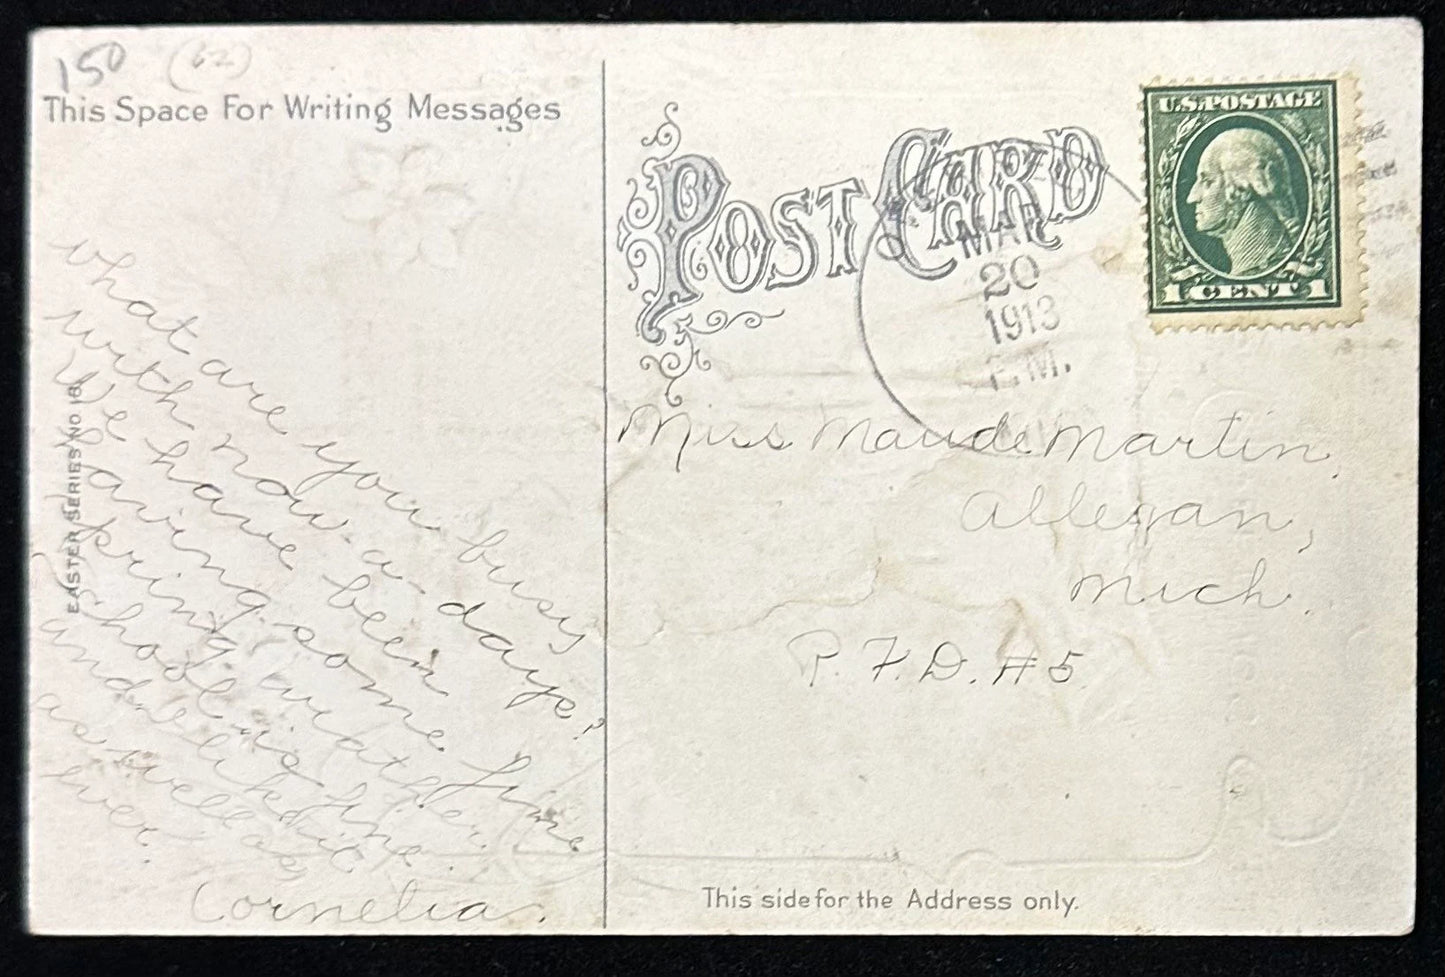 150 (62)
This Space For Writing Messages
POST CARD
U.S. POSTAGE
1 CENT 1
MAR
20
1913
P.M.
What are you busy
with now-a-days?
We have been
having some fine
spring weather.
School is fine.
and I like it
as well as
ever.
Cornelia.
EASTER SERIES NO 18
Miss Maude Martin,
Allegan,
Mich.
R.F.D. #5
This side for the Address only.